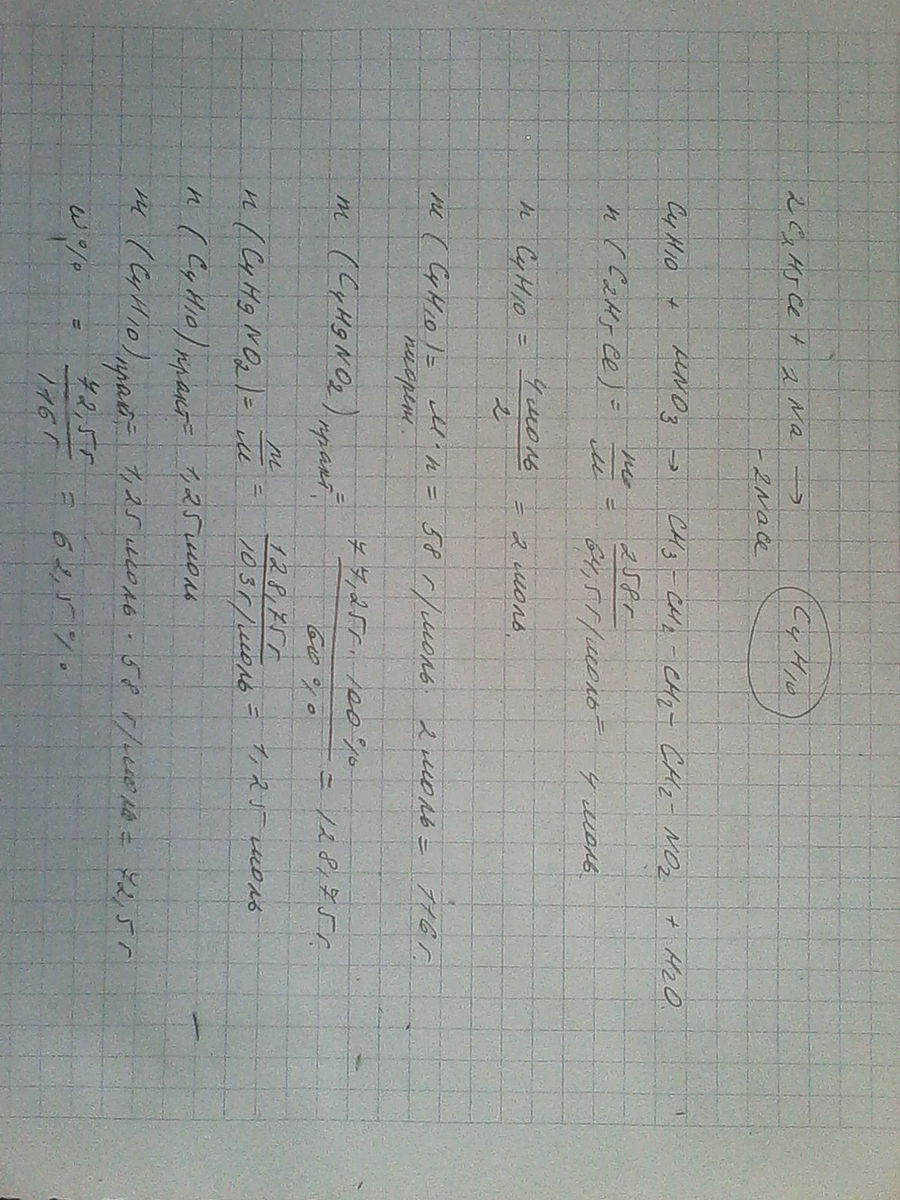 2C2H5Cl + 2Na → C4H10
-2NaCl
C4H10 + HNO3 → CH3-CH2-CH2-CH2-NO2 + H2O
n (C2H5Cl) = m/M = 258г/64,5г/моль = 4 моль.
n C4H10 = 4моль/2 = 2 моль.
m (C4H10) = M·n = 58 г/моль · 2 моль = 116 г.
теорет.
m (C4H9NO2) практ. = 77,25г · 100%/60% = 128,75г.
n (C4H9NO2) = m/M = 128,75г/103г/моль = 1,25 моль
n (C4H10) практ. = 1,25 моль
m (C4H10) практ. = 1,25 моль · 58 г/моль = 72,5 г
ω% = 72,5г/116г = 62,5%.